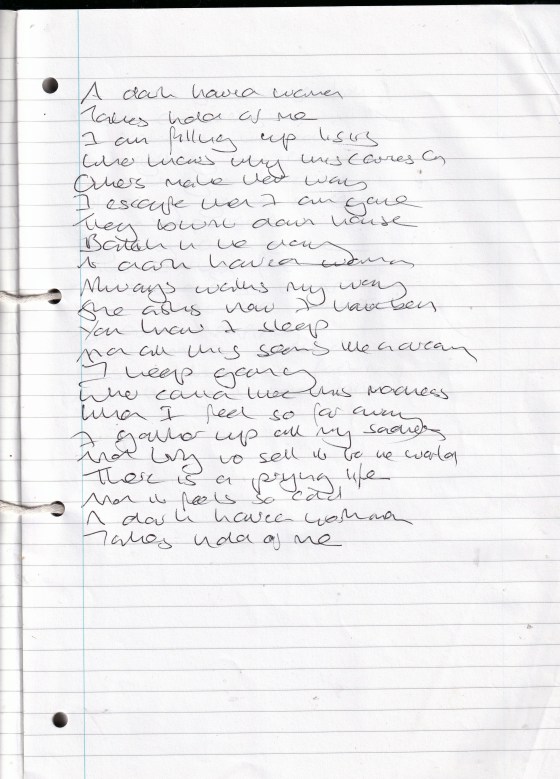 A dark haired woman
Takes hold of me
I am filling up
Who knows why this carries on
Others make their way
I escape when I am gone
They down house
in the
A dark haired woman
Always walks my way
She asks how I have been
You know I sleep
all this seems like a dream
I keep going
Who could like this madness
When I feel so far away
I gather up all my sadness
And try to sell it to the world
There is a life
And it feels so cold
A dark haired woman
Takes hold of me